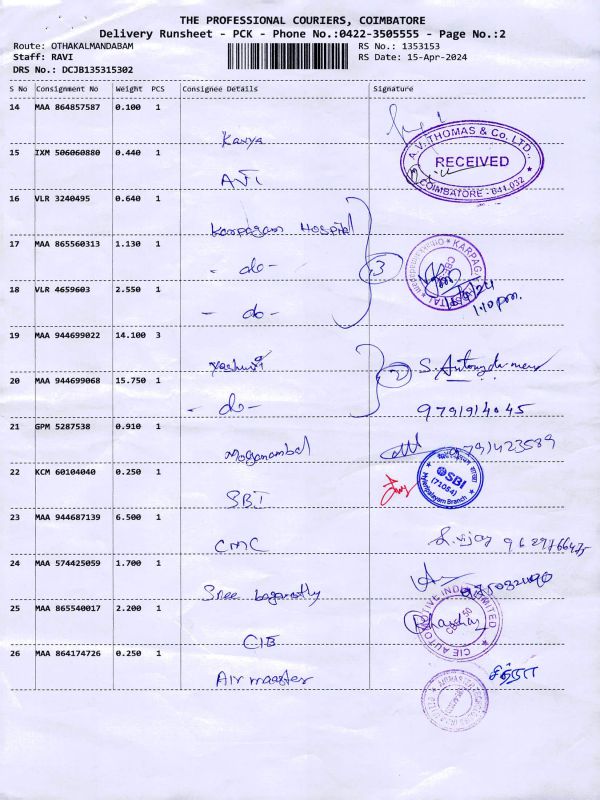 THE PROFESSIONAL COURIERS, COIMBATORE
Delivery Runsheet - PCK - Phone No.:0422-3505555 - Page No.:2
Route: OTHAKALMANDABAM
RS No.: 1353153
Staff: RAVI
RS Date: 15-Apr-2024
DRS No.: DCJB135315302
S No Consignment No Weight PCS Consignee Details Signature
14 MAA 864857587 0.100 1
Kavya
A.V. THOMAS & Co. LTD.,
RECEIVED
COIMBATORE - 641 032
15 IXM 506060880 0.440 1
AVT
16 VLR 3240495 0.640 1
Karpagam Hospital
17 MAA 865560313 1.130 1
- do -
3
KARPAGAM HOSPITAL
18 VLR 4659603 2.550 1
- do -
1.10 pm.
19 MAA 944699022 14.100 3
Yashuvi
2
S.
20 MAA 944699068 15.750 1
- do -
9791914045
21 GPM 5287538 0.910 1
Moganambal
791423589
22 KCM 60104040 0.250 1
SBI
SBI
(71054)
Branch
23 MAA 944687139 6.500 1
CMC
S. vijay
24 MAA 574425059 1.700 1
Sree
25 MAA 865540017 2.200 1
CIE
CIE AUTOMOTIVE INDIA LIMITED
26 MAA 864174726 0.250 1
Air master
சித்ரா